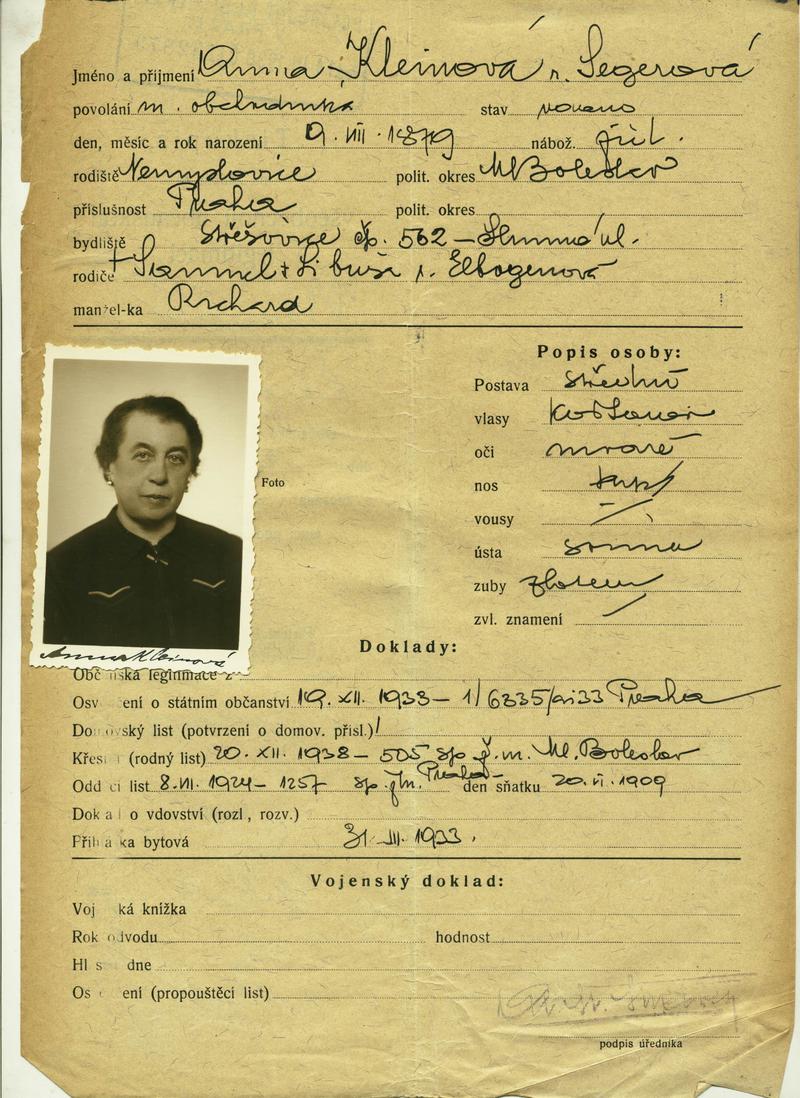 Jméno a příjmení Anna Kleinová r. Segerová
povolání m. obchodníka stav vdaná
den, měsíc a rok narození 9.VIII.1879 nábož. žid.
rodiště Nemyslovice polit. okres Ml Boleslav
příslušnost Praha polit. okres
bydliště Střešovice čp. 562 – ul.
rodiče Samuel + Libuši r. Elbogenová
manžel-ka Richard
Popis osoby:
Postava střední
vlasy
oči
nos
Foto
vousy /
ústa
zuby
zvl. znamení /
Anna Kleinová
Doklady:
Obč ská legitimace
Osv ení o státním občanství 19.XII.1933 – 1/6335/ai33 Praha
Domovský list (potvrzení o domov. přísl.) /
Křes (rodný list) 20.XII.1938 – 505 Ml. Boleslav
Odd cí list 8.VII.1924 – 1257 Praha den sňatku 20.VI.1909
Doka o vdovství (rozl, rozv.)
Přihl ka bytová 31.III.1933.
Vojenský doklad:
Voj ká knížka
Rok odvodu hodnost
Hl s dne
Os ení (propouštěcí list)
podpis úředníka